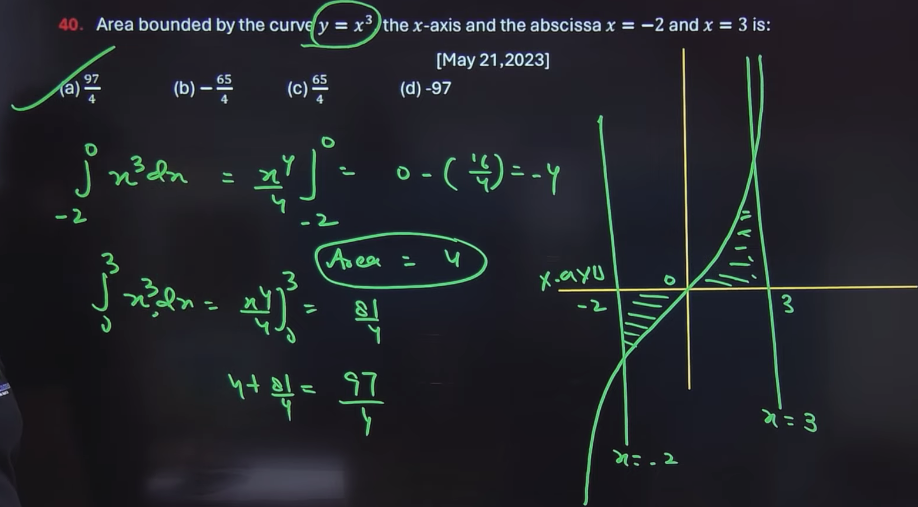 40. Area bounded by the curve y = x³ the x-axis and the abscissa x = −2 and x = 3 is:
[May 21,2023]
(a) 97/4 (b) − 65/4 (c) 65/4 (d) -97
∫₋₂⁰ x³dx = x⁴/4 ]₋₂⁰ = 0 - (16/4) = -4
Area = 4
∫₀³ x³dx = x⁴/4 ]₀³ = 81/4
4 + 81/4 = 97/4
x-axis
-2 0 3
x = 3
x = -2